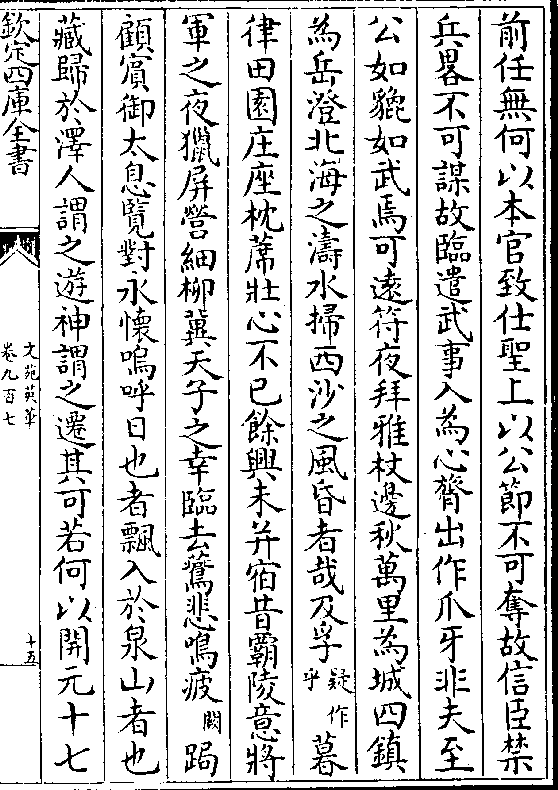 前任無何以本官致仕聖上以公節不可奪故信臣禁
兵畧不可謀故臨遣武事入為心膂出作爪牙非夫至
公如貔如武焉可遠符夜拜雅杖邊秋萬里為城四鎮
為岳澄北海之濤水掃西沙之風昏者哉及孚疑作乎暮
律田園庄座枕蓆壯心不已餘興未并宿昔霸陵意將
軍之夜獵屏營細柳冀天子之幸臨去鶱悲鳴疲闕跼
顧賔御太息覽對永懷嗚呼日也者飄入於泉山者也
藏歸於澤人謂之遊神謂之遷其可若何以開元十七
欽定四庫全書
文苑英華
卷九百七
十五